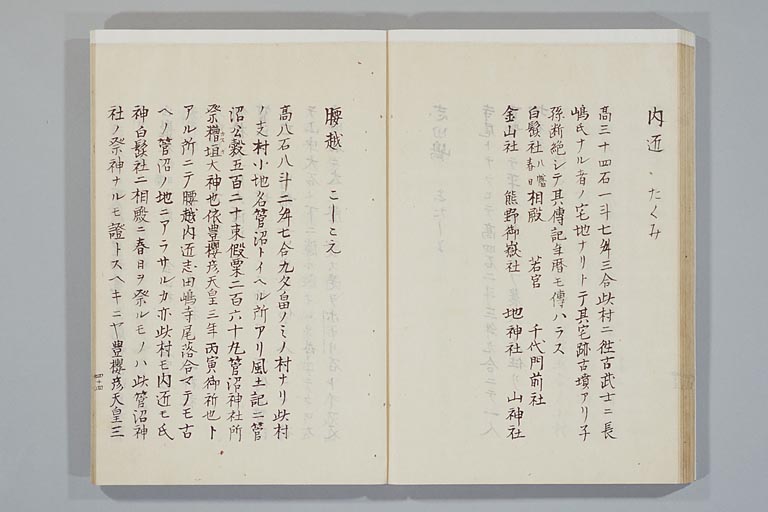 内近 たくみ
高三十四石一斗七舛三合此村ニ徃古武士ニ長
嶋氏ナル者ノ宅地ナリトテ其宅跡古墳アリ子
孫断絶シテ其傳記年暦モ傳ハラス
白髭社 八幡 春日 相殿 若宮 千代門前社
金山社 熊野御嶽社 地神社 山神社
腰越 こしこえ
高八石八斗二舛七合九夕畠ノミノ村ナリ此村
ノ支村小地名管沼トイヘル所アリ風土記ニ管
沼公穀五百二十束假粟二百六十丸管沼神社所
祭糟垣大神也依豊櫻彦天皇三年丙寅御祈也ト
アル所ニテ腰越内近志田嶋寺尾落合マテモ古
ヘノ管沼ノ地ニアラサルカ亦此村モ内近モ氏
神白髭社ニ相殿ニ春日ヲ祭ルモノハ此管沼神
社ノ祭神ナルモ證トスヘキニヤ豊櫻彦天皇三
四十四